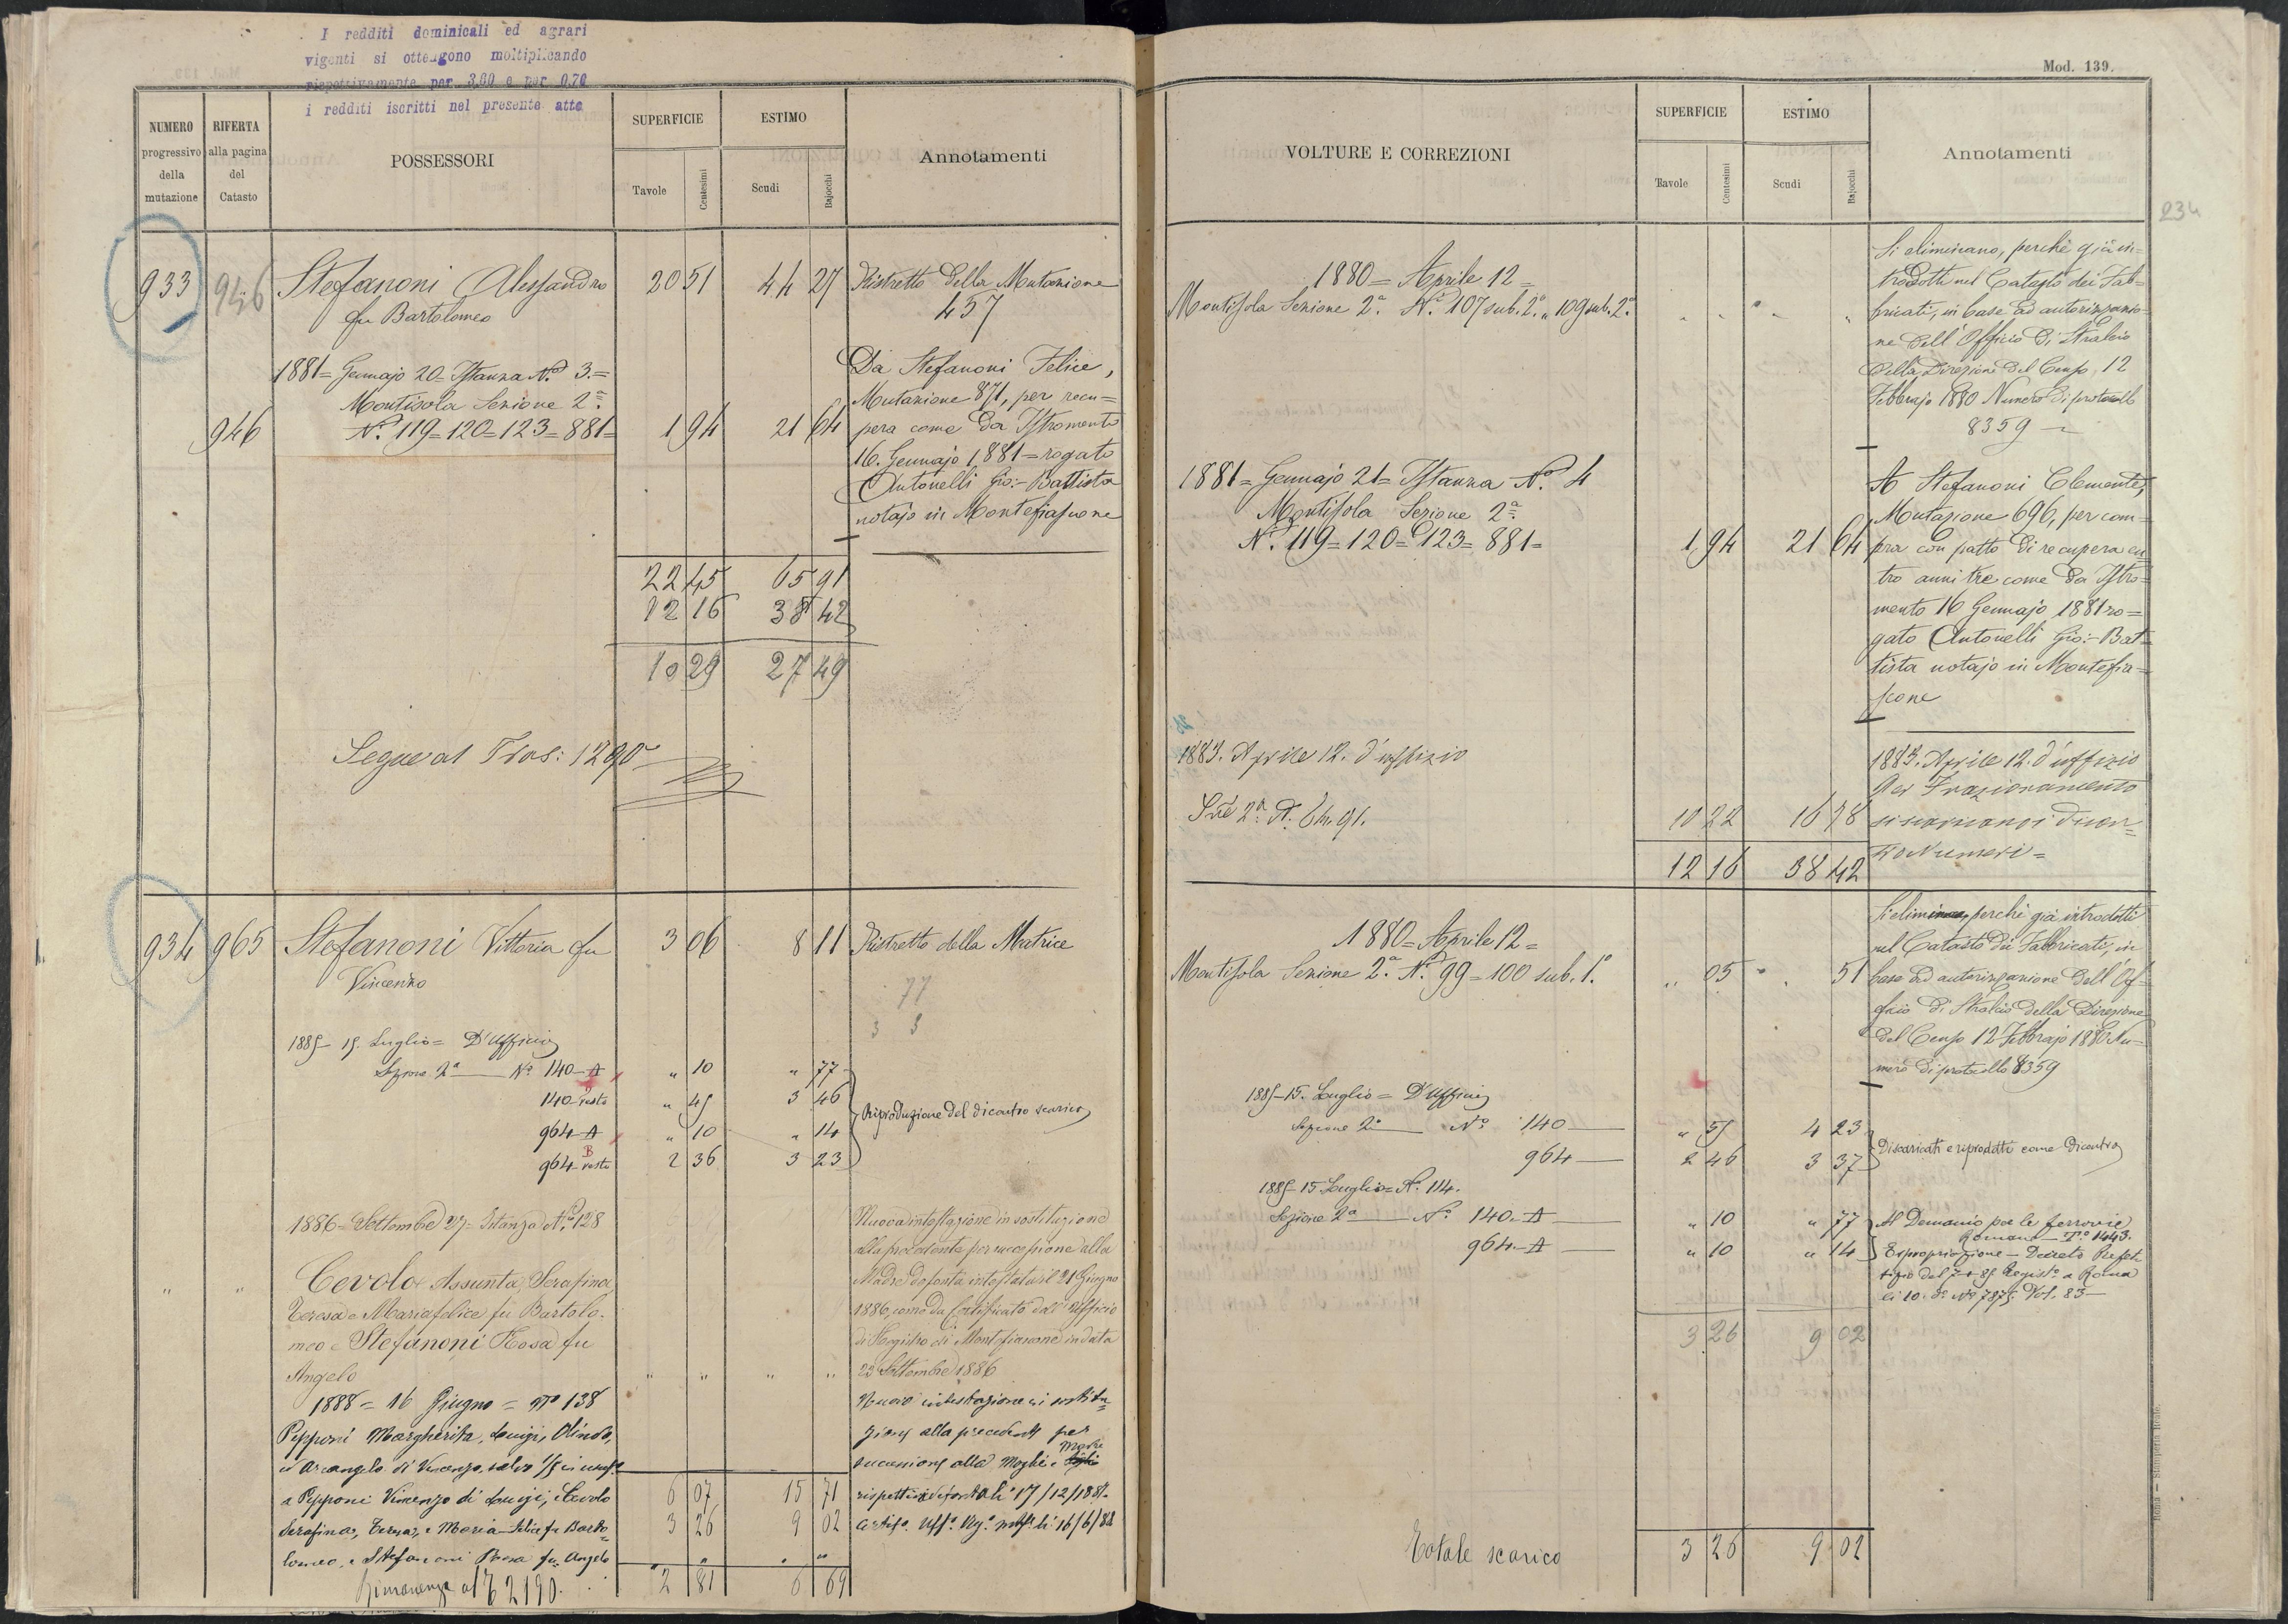 I redditi dominicali ed agrari
vigenti si ottengono moltiplicando
rispettivamente per 3,80 e per 0,70
i redditi iscritti nel presente atto
NUMERO progressivo della mutazione
RIFERTA alla pagina del Catasto
POSSESSORI
SUPERFICIE
Tavole
Centesimi
ESTIMO
Scudi
Bajocchi
Annotamenti
933 946 Stefanoni Alessandro 20 51 44 27 Ristretto della Mutazione
fu Bartolomeo 457
1881= Gennajo 20= Istanza N.º 3.=
Montisola Sezione 2ª
946 N.º 119=120=123=881= 1 94 21 64
Da Stefanoni Felice,
Mutazione 871, per recu=
pera come da Istromento
16. Gennajo 1881= rogato
Antonelli Gio:-Battista
notajo in Montefiascone
22 45 65 91
12 16 38 42
10 29 27 49
Segue al Tras: 1290
934 965 Stefanoni Vittoria fu 3 06 8 11 Ristretto della Matrice
Vincenzo
77
3 3
1885- 15. Luglio= D'Officio
Sezione 2ª N.º 140-A " 10 " 77
140 resto " 45 3 46
964-A " 10 " 14
B
964 resto 2 36 3 23
Riproduzione del dicontro scarico
1886= Settembre 27= Istanza N.º 128
" " Cevolo Assunta, Serafina,
Teresa e Mariafelice fu Bartolo-
meo e Stefanoni Rosa fu
Angelo " " " "
Nuova intestazione in sostituzione
alla precedente per successione alla
Madre defonta intestata il 21 Giugno
1886, come da Certificato dell'Ufficio
di Registro di Montefiascone in data
23 Settembre 1886
1888 = 16 Giugno = N.º 138
Pepponi Margherita, Luigi, Olindo,
ed Arcangelo di Vincenzo, salvo 1/5 in usuf.º
a Pepponi Vincenzo di Luigi, Cevolo
Serafina, Teresa, e Maria-Felice fu Barto=
lomeo, e Stefanoni Rosa fu Angelo
Nuova intestazione in sostitu=
zione alla precedente per
Madre
successione alla Moglie e
rispettive defonta li 17/12/1887.
Certif.º Uff.º Reg.º li 16/6/88
6 07 15 71
3 26 9 02
2 81 6 69
Rimanenza al T.º 2190.
Mod. 139.
234
VOLTURE E CORREZIONI
SUPERFICIE
Tavole
Centesimi
ESTIMO
Scudi
Bajocchi
Annotamenti
1880= Aprile 12=
Montisola Sezione 2ª. N.º 107 sub. 2.º " 109 sub. 2.º
Si eliminano, perchè già in=
trodotti nel Catasto dei Fab=
bricati, in base ad autorizzazio=
ne dell'Officio di Stralcio
della Direzione del Censo, 12
Febbrajo 1880 Numero di protocollo
8359
1881= Gennajo 21= Istanza N.º 4
Montisola Sezione 2ª.
N.º 119=120=123=881= 1 94 21 64
A Stefanoni Clemente,
Mutazione 696, per com=
pra con patto di recupera en=
tro anni tre come da Istro=
mento 16 Gennajo 1881 ro=
gato Antonelli Gio:-Bat=
tista notajo in Montefia=
scone
1883. Aprile 12. d'uffizio
Sne 2ª N.
10 22 16 78
12 16 38 42
1883. Aprile 12. d'uffizio
Per Frazionamento
si scaricano i dicon=
tro Numeri=
1880= Aprile 12=
Montisola Sezione 2ª. N.º 99=100 sub. 1.º " 05 " 51
Si eliminano, perchè già introdotti
nel Catasto dei Fabbricati, in
base ad autorizzazione dell'Of=
ficio di Stralcio della Direzione
del Censo 12 Febbrajo 1880 Nu=
mero di protocollo 8359
1885-15. Luglio= D'Officio
Sezione 2ª N.º 140 " 55 4 23
964 2 46 3 37
Discaricati e riprodotti come dicontro
1885-15 Luglio= N.º 114.
Sezione 2ª N.º 140-A " 10 " 77
964-A " 10 " 14
Al Demanio per le ferrovie
Romane - T.º 1443.
Espropriazione - Decreto Prefet-
tizio del 7-4-85 Regist.º a Roma
li 10. d.º N.º 7875 Vol. 83-
3 26 9 02
Totale scarico 3 26 9 02
Roma - Stamperia Reale.